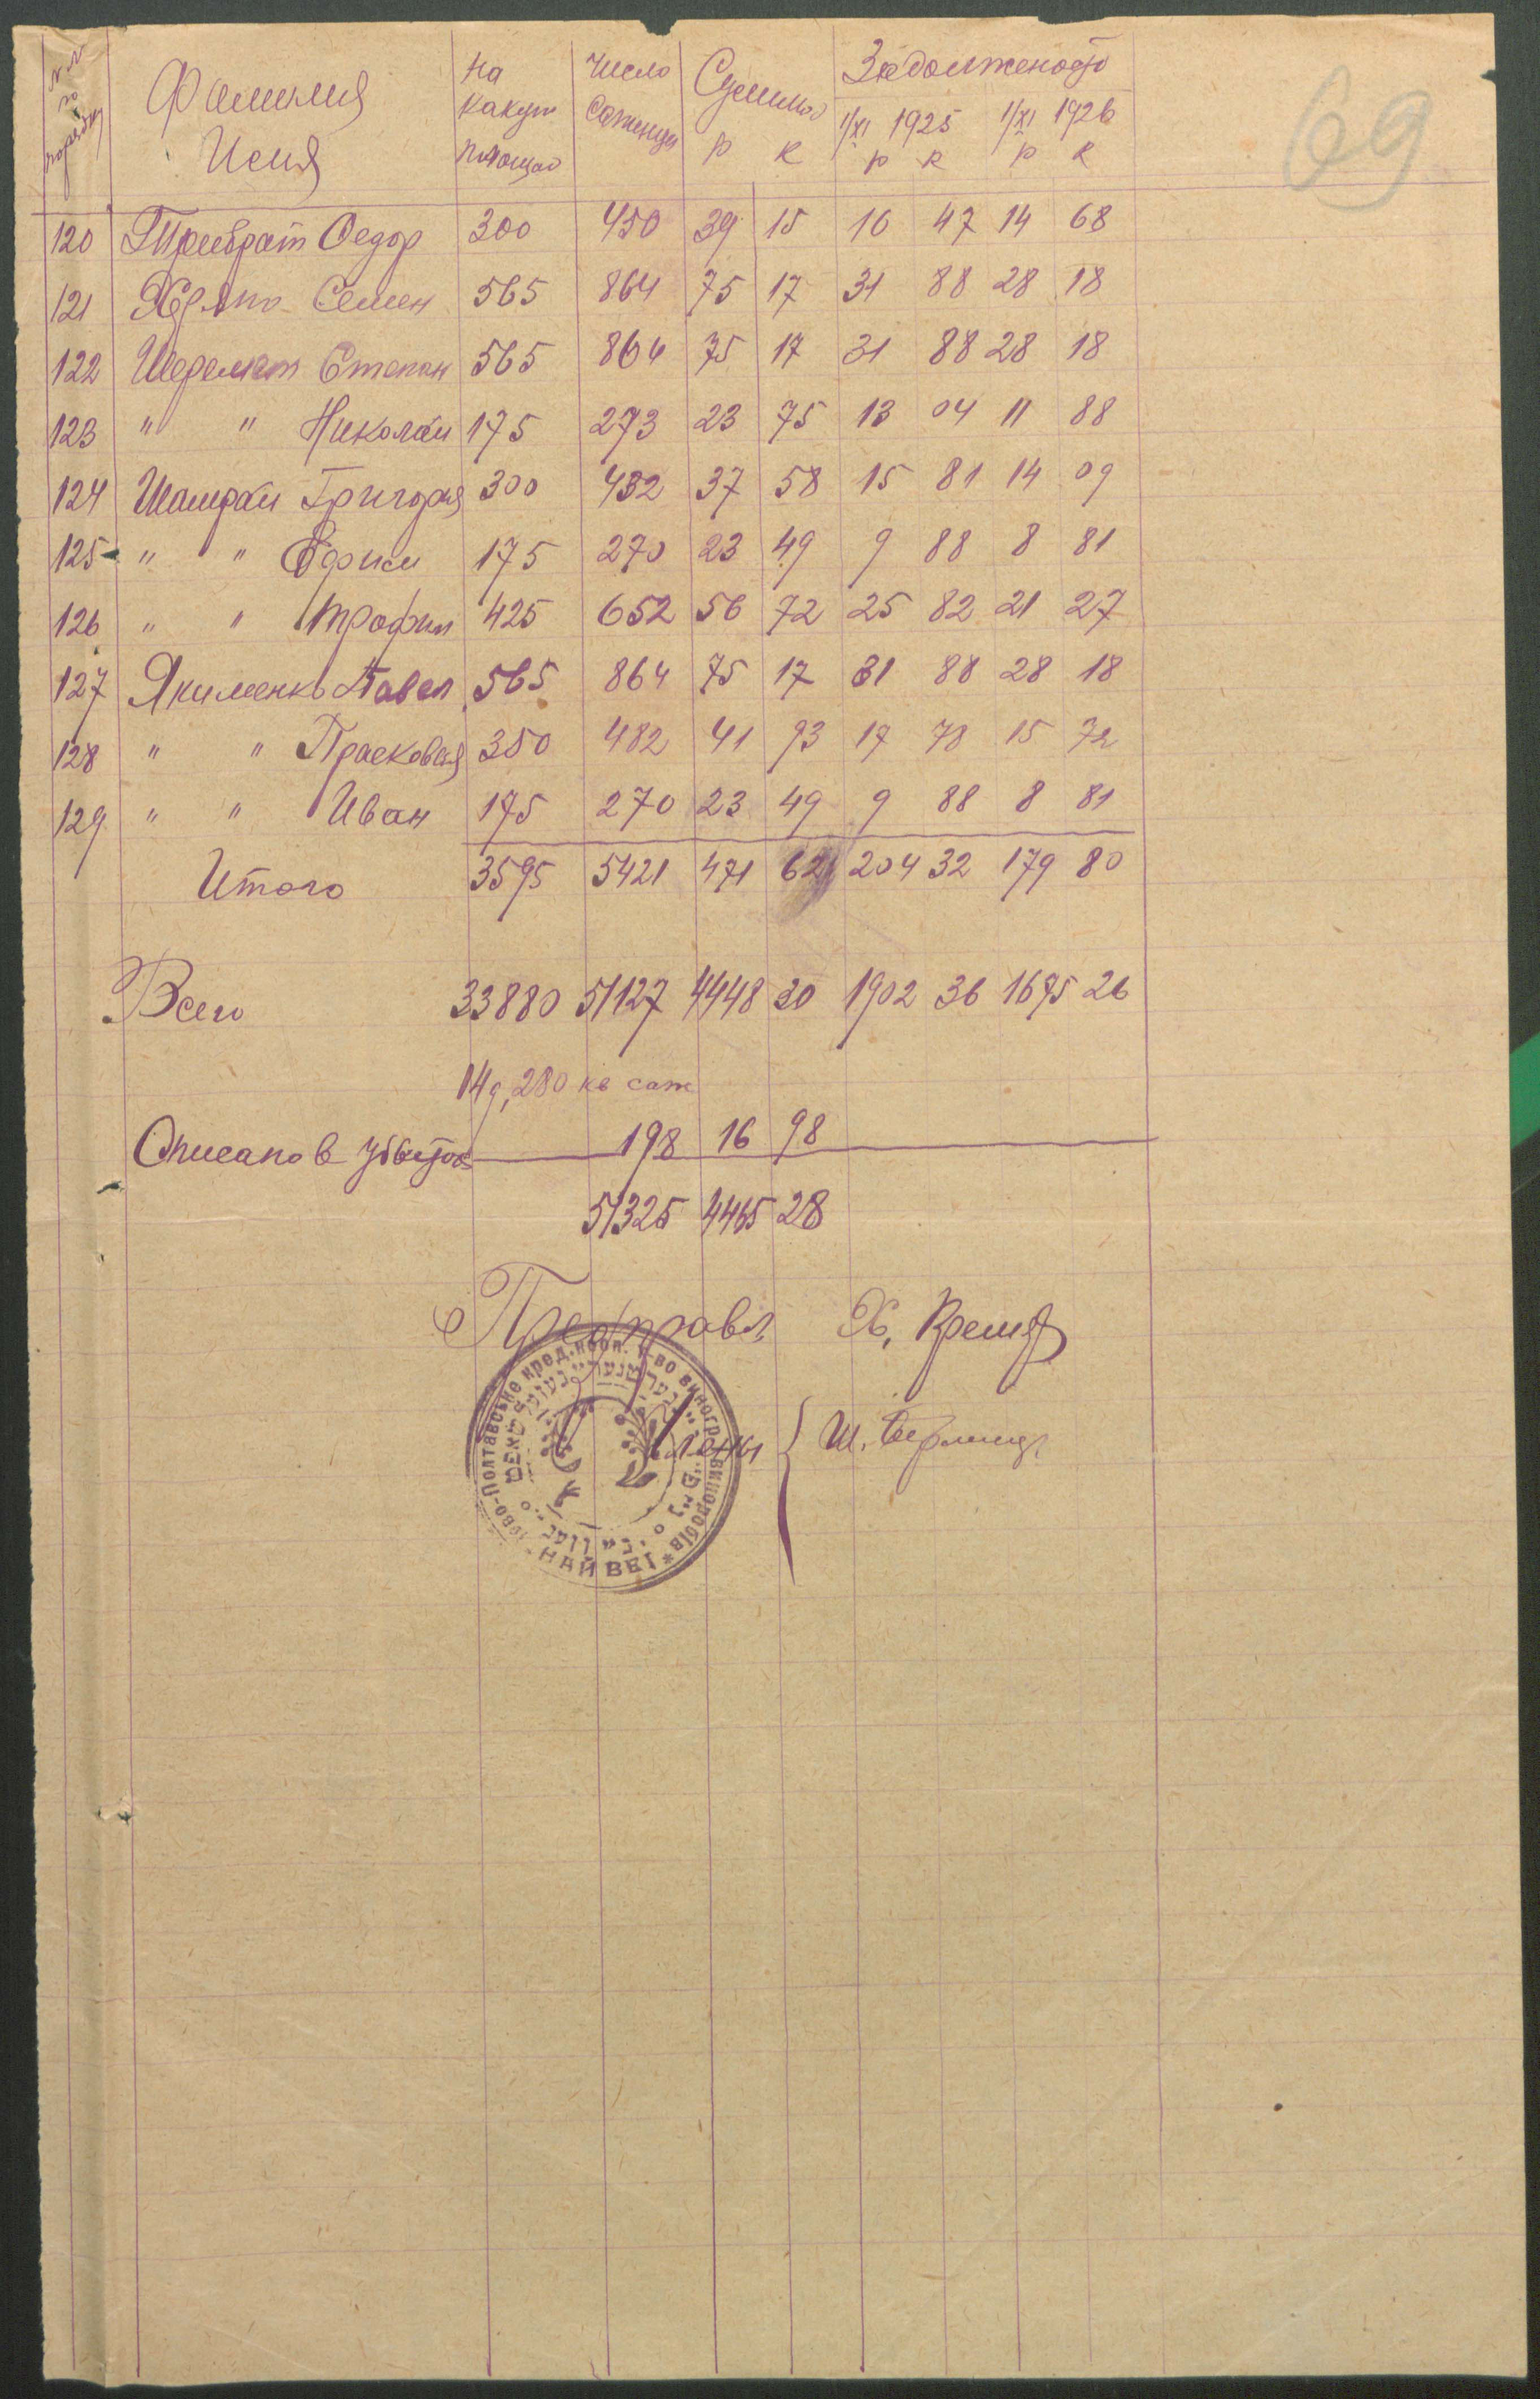 69
№№ по порядку Фамилия Имя На какую площад Число саженцев Сумма р к Задолженость 1/XI 1925 р к 1/XI 1926 р к
120 Федор 300 450 39 15 16 47 14 68
121 Семен 565 864 75 17 31 88 28 18
122 Шеремет Степан 565 864 75 17 31 88 28 18
123 " " Николай 175 273 23 75 13 04 11 88
124 Шамрай Григорий 300 432 37 58 15 81 14 09
125 " " Ефим 175 270 23 49 9 88 8 81
126 " " Трофим 425 652 56 72 25 82 21 27
127 Якименко Павел 565 864 75 17 31 88 28 18
128 " " Прасковея 350 482 41 93 17 78 15 72
129 " " Иван 175 270 23 49 9 88 8 81
Итого 3595 5421 471 62 204 32 179 80
Всего 33880 51127 4448 30 1902 36 1675 26
14д, 280 кв саж
Списано в убыток 198 16 98
51325 4465 28
Предправл
Члены { Ш.
НАЙ ВЕГ